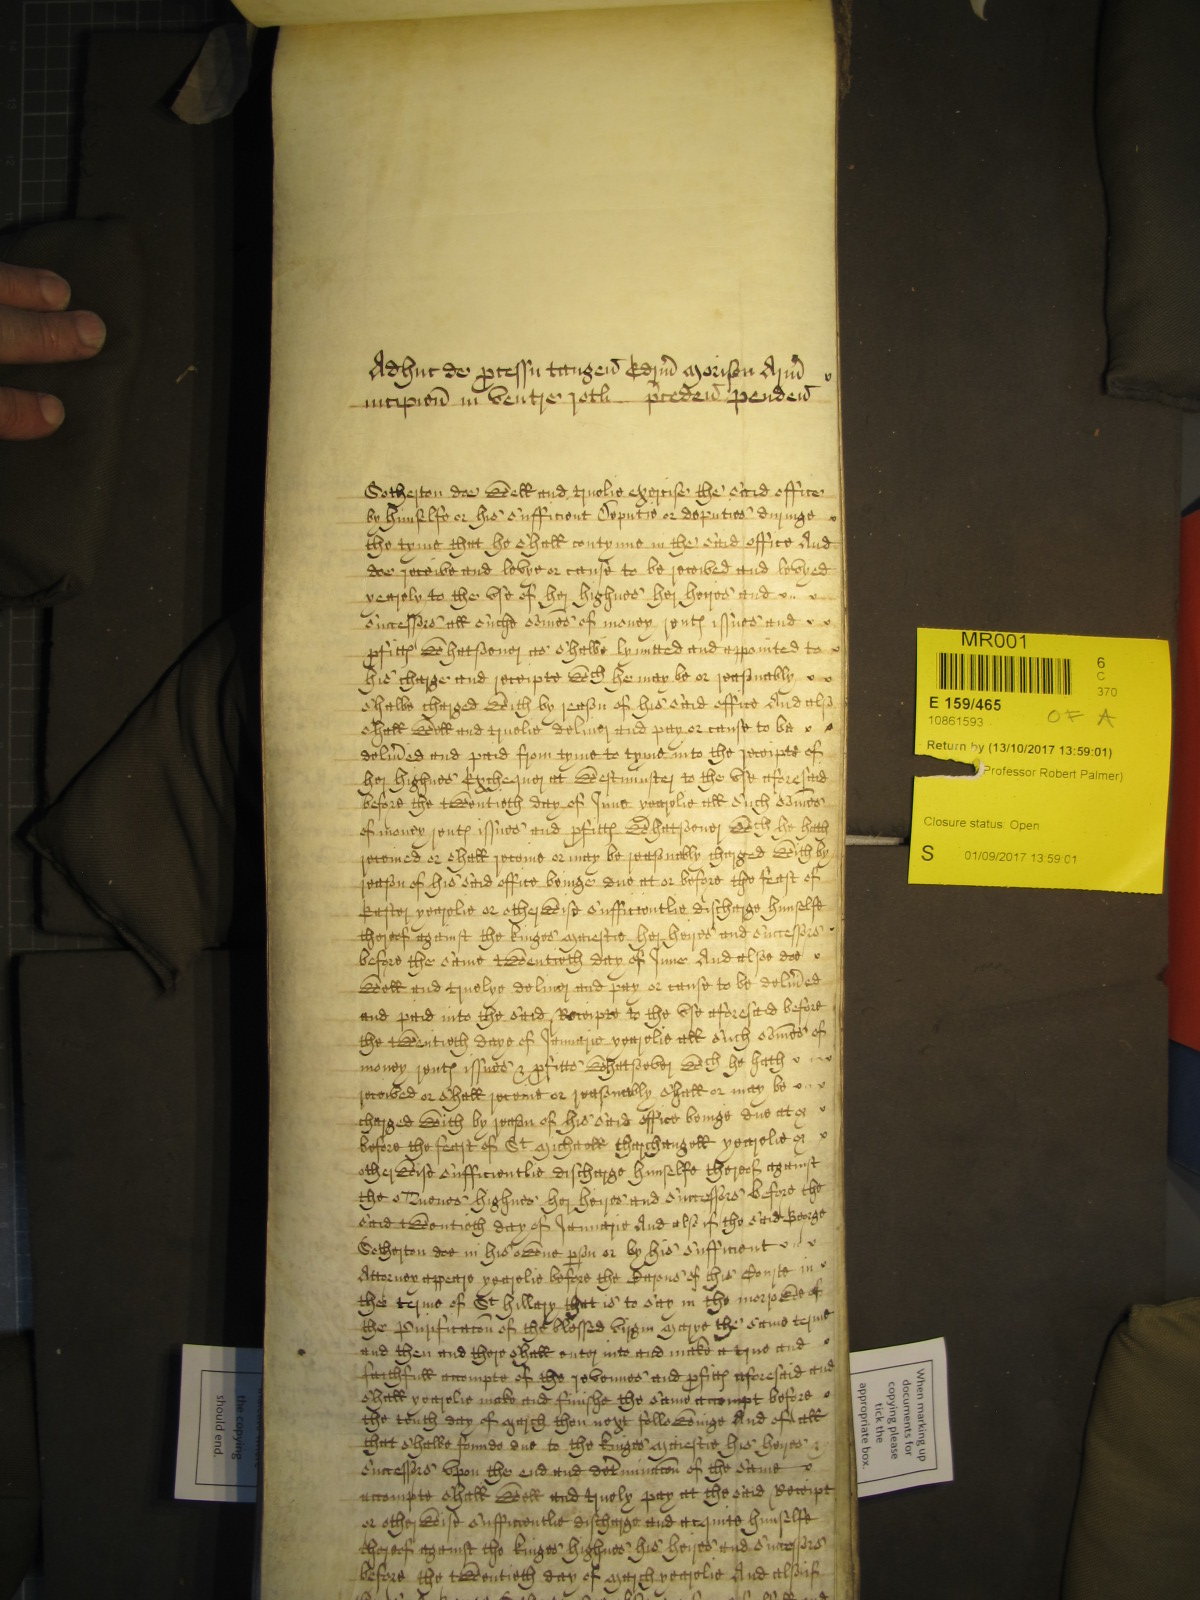 Adhuc de pcessu tangen Edm Morison Arm
incipien in ventre rotli pceden penden
Sotherton doe well and truelie exercise the said office
by himselfe or his sufficient Deputie or deputies duringe
the tyme that he shall contynue in the said office And
doe receive and levye or cause to be received and levyed
yearely to the use of her highnes her heires and
successors all suche somes of money rents issues and
pfitts whatsoever as shalbe lymitted and appointed to
his charge and receipte wch he may be or reasonably
shalbe charged with by reason of his said office And also
shall well and truelie deliver and pay or cause to be
delived and paid from tyme to tyme into the receipte of
her highnes Exchequer at Westminster to the use aforesaid
before the twentieth day of June yearelie all such somes
of money rents issues and pfitts whatsoever wch he hath
received or shall receive or may be reasonably charged with by
reason of his said office beinge due at or before the feast of
Easter yearelie or otherwise sufficientlie discharge himselfe
thereof against the kinges Majestie her heires and successors
before the same twentieth day of June And alsoe doe
well and truelye deliver and pay or cause to be delived
and paid into the said Receipte to the use aforesaid before
the twentieth daye of Januarie yearelie all such somes of
money rents issues & pfitts whatsoever wch he hath
received or shall receive or reasonably shall or may be
charged with by reason of his said office beinge due at or
before the feast of St Michaell tharchangell yearelie or
otherwise sufficientlie discharge himselfe thereof against
the Quenes highnes her heires and successors before the
said twentieth day of Januarie And also if the said George
Sotherton doe in his owne pson or by his sufficient
Attorney appeare yearelie before the Barons of his Courte in
the terme of St hillary that is to say in the morowe of
the Purificacon of the blessed virgin Marye the same terme
and then and there shall enter into and make a true and
faithfull accompte of the revenues and pfitts aforesaid and
shall yearelie make and finishe the same accompt before
the tenth day of March then next followinge And of all
that shalbe founde due to the kinges Majestie his heires &
successors upon the end and determinacon of the same
accompte shall well and truely pay at the said Receipt
or otherwise sufficientlie discharge and acquite himselfe
thereof against the kinges highnes his heires and successors
before the twentieth day of March yearelie And also if
MR001
6
C
370
E 159/465
OF A
10861593
Return by (13/10/2017 13:59:01)
Professor Robert Palmer)
Closure status: Open
S 01/09/2017 13:59:01
When marking up
documents for
copying please
tick the
appropriate box.
the copying
should end